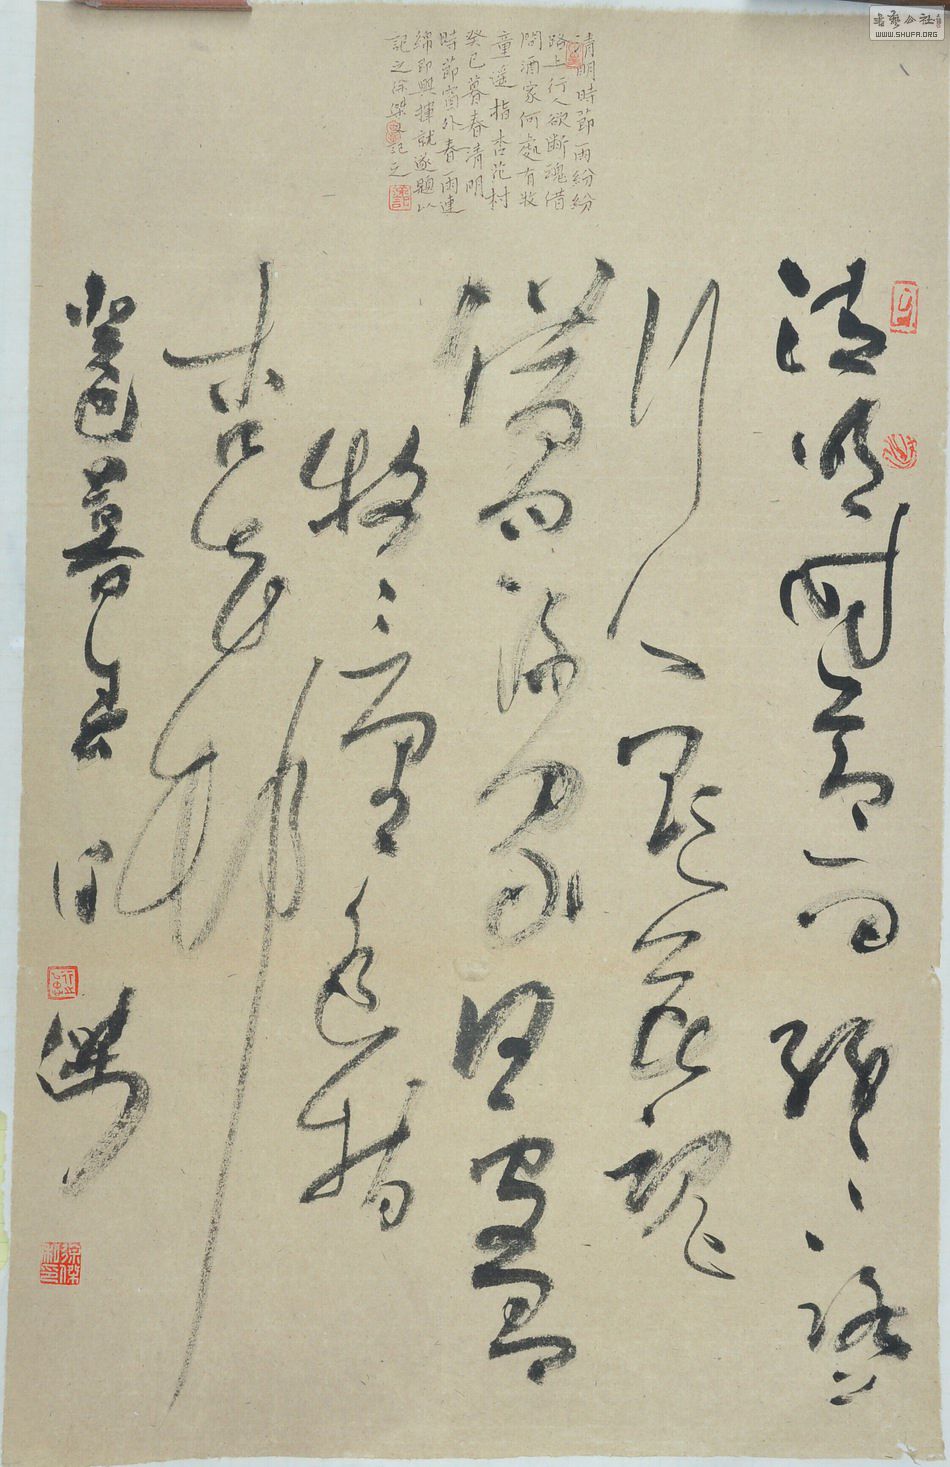 書藝公社
WWW.SHUFA.ORG
清明時節雨紛紛
路上行人欲斷魂借
問酒家何處有牧
童遥指杏花村
癸巳暮春清明
時節窗外春雨連
綿即興揮就遂題以
記之徐桀 記之
清明時節雨紛紛路上
行人欲斷魂
借問酒家何處有
牧童遥指
杏花村
癸巳暮春
徐傑私印